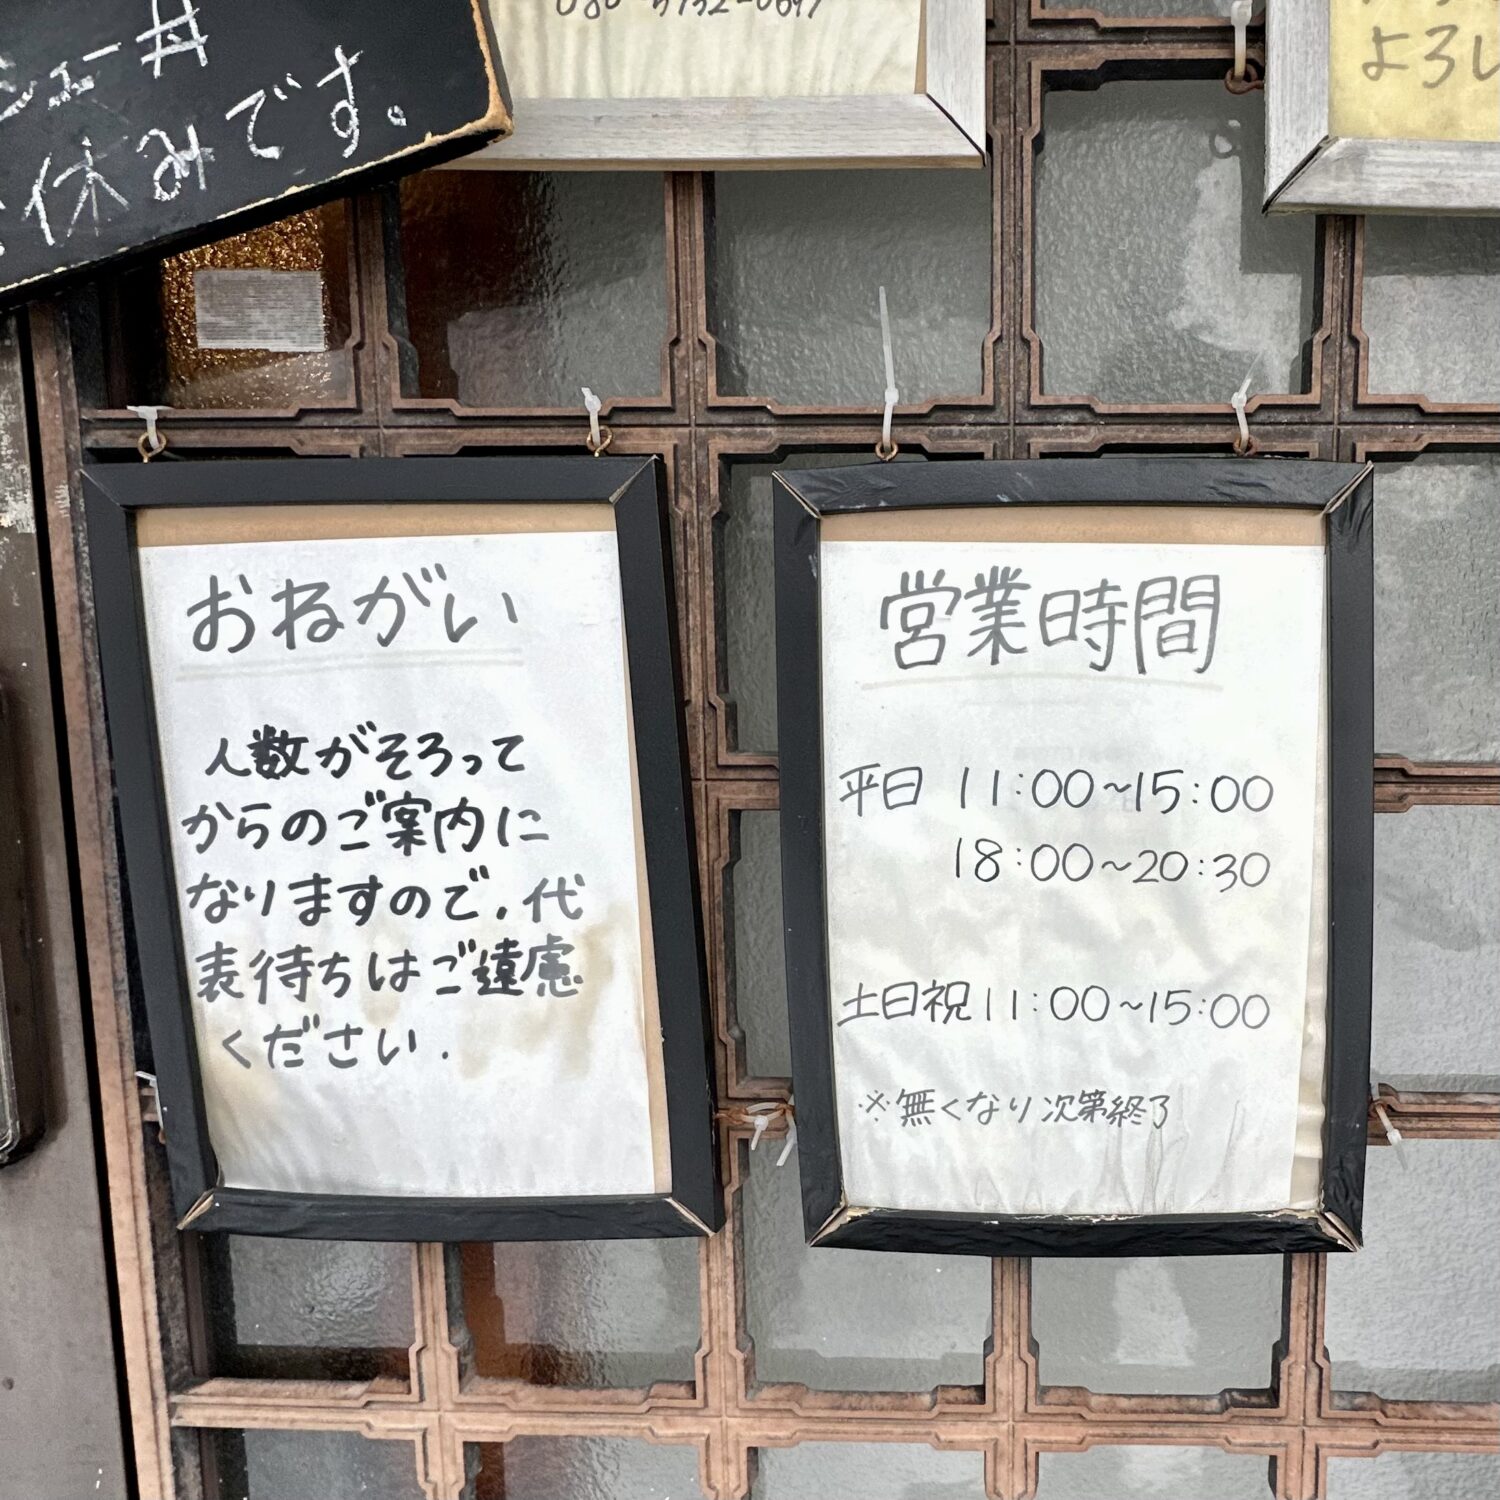 シュー丼
お休みです。
よろし
おねがい
人数がそろって
からのご案内に
なりますので、代
表待ちはご遠慮
ください.
営業時間
平日 11:00~15:00
18:00~20:30
土日祝 11:00~15:00
※無くなり次第終了